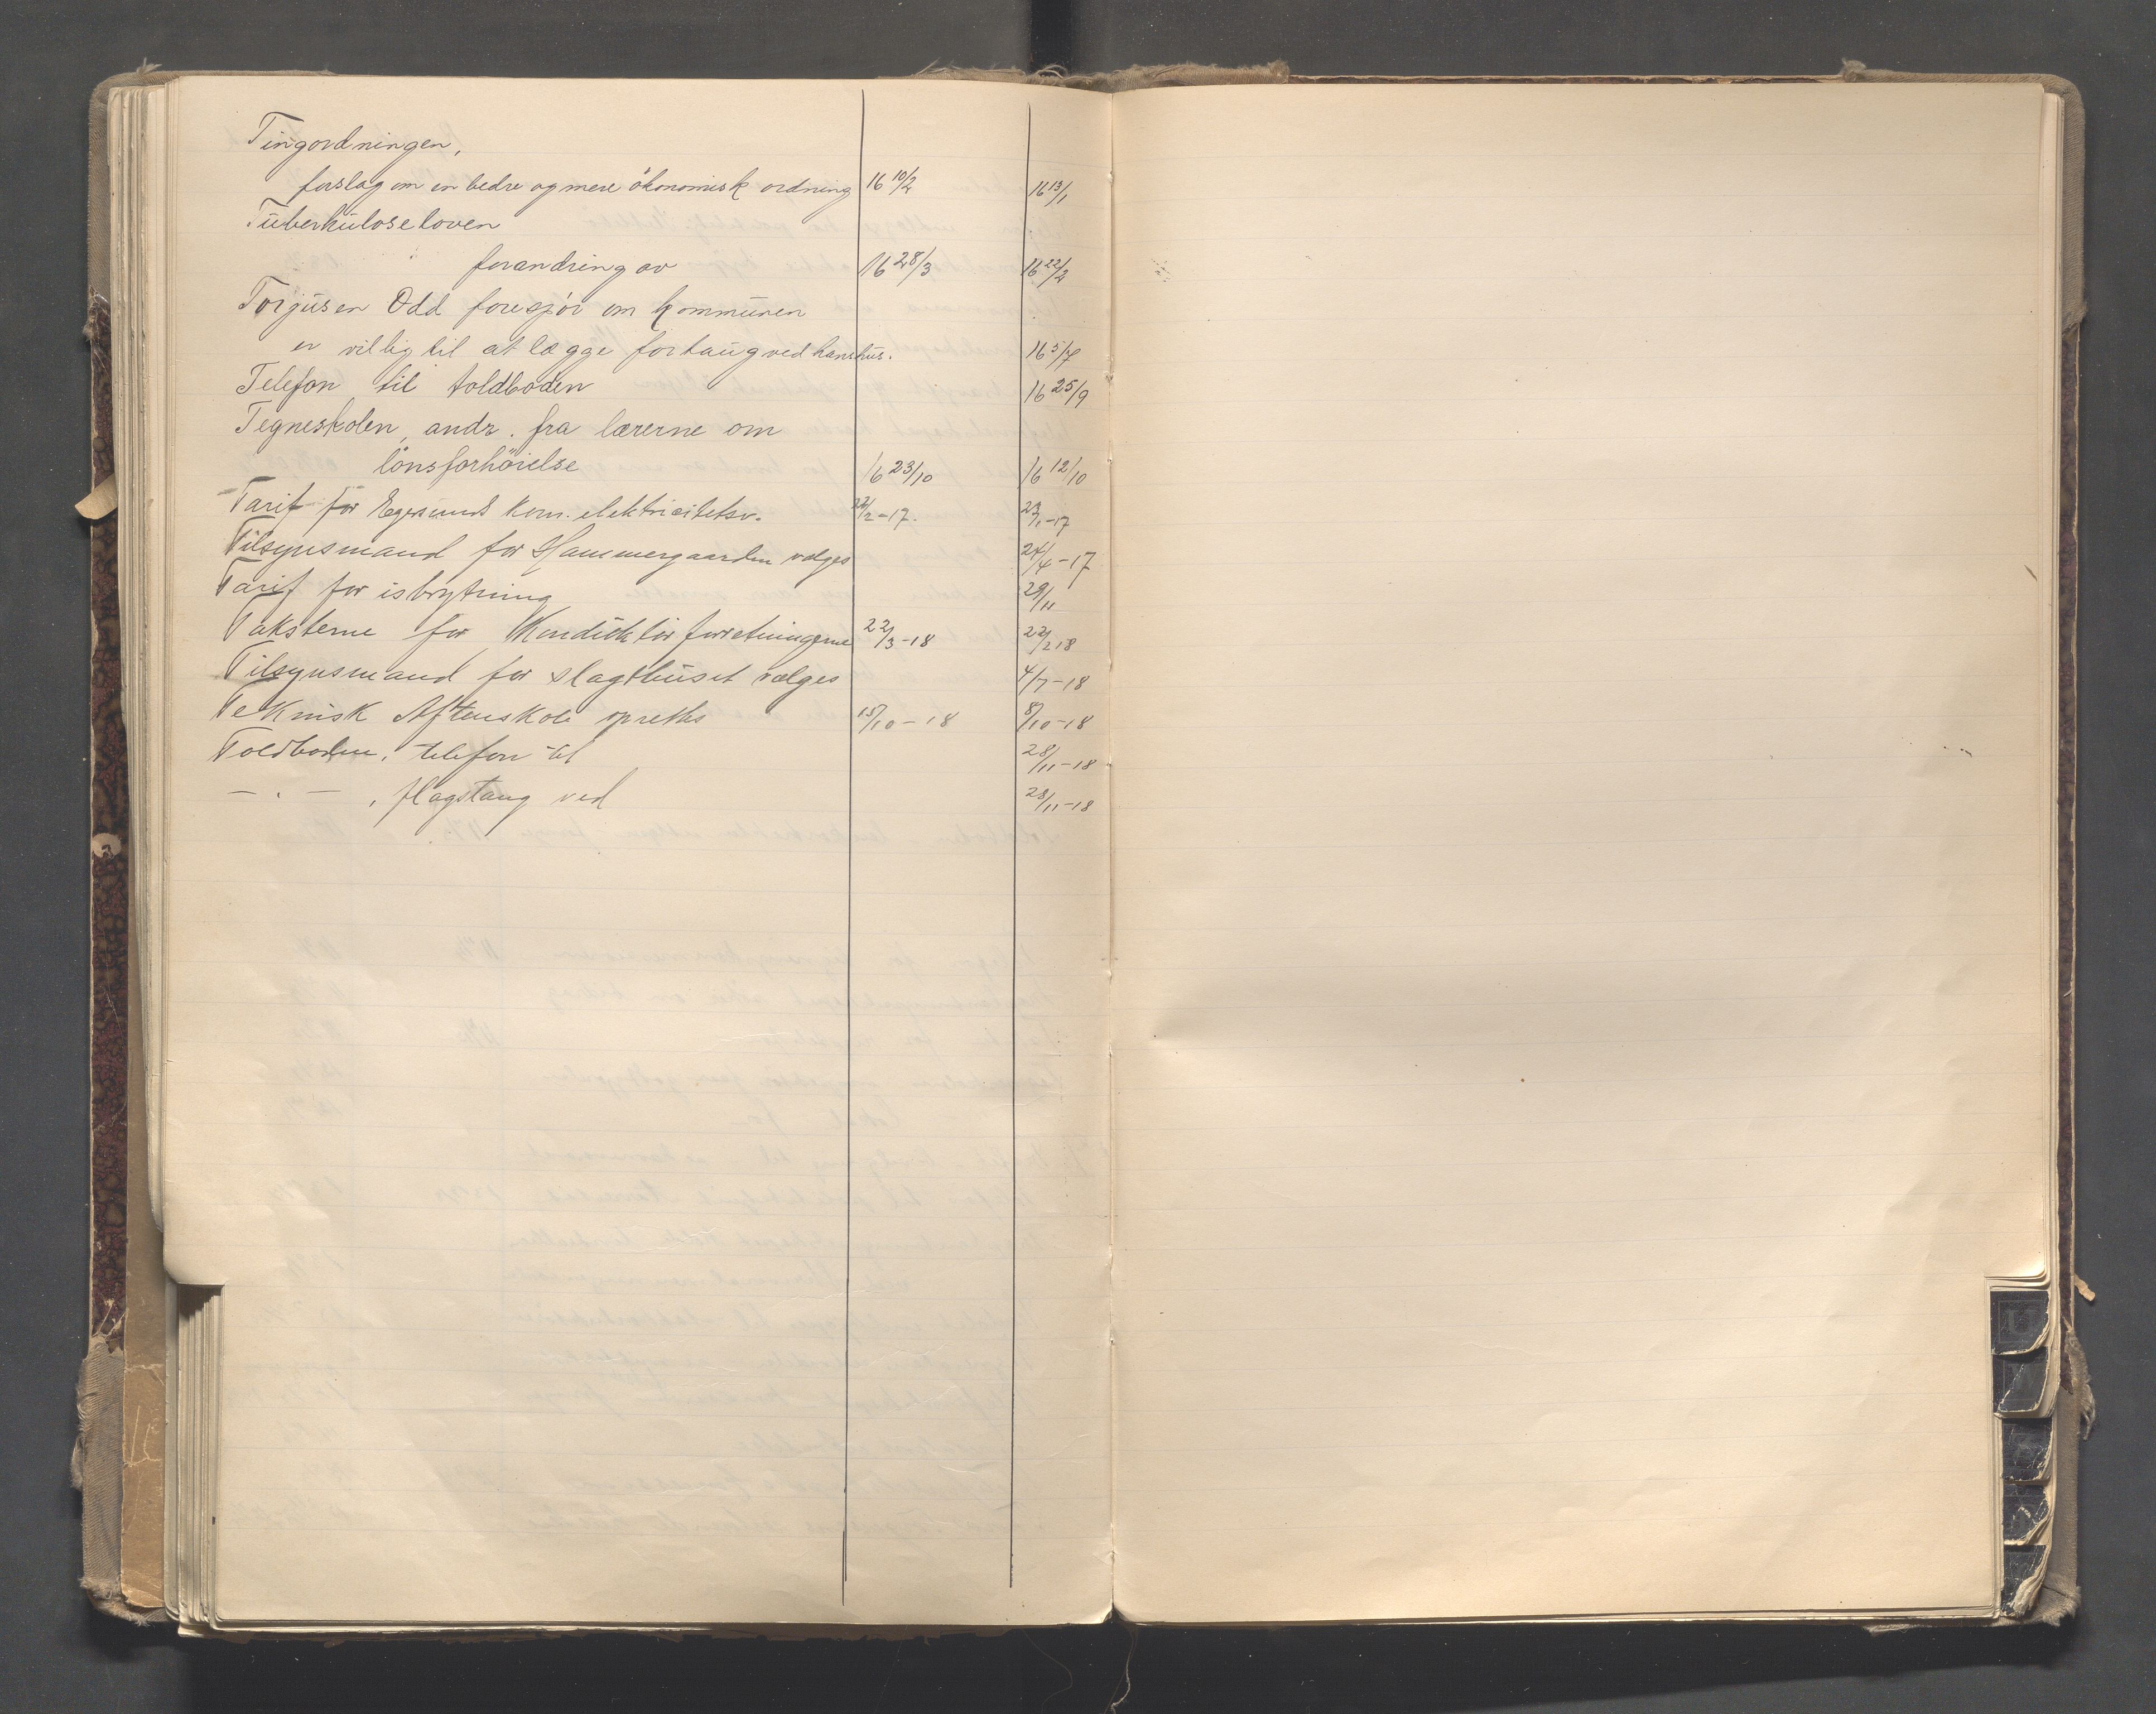 Tingordningen,
forslag om en bedre og mere økonomisk ordning 16 10/2 16 13/1
Tuberkuloseloven
forandring av 16 28/3 16 22/2
Torjusen Odd forespør om kommunen
er villig til at lægge fortaug ved hans hus. 16 5/7
Telefon til toldboden 16 25/9
Tegneskolen, andr. fra lærerne om
lönsforhöielse 16 23/10 16 12/10
Tarif for Egersunds kom. elektricitetsv. 22/2-17. 23/1-17
Tilsynsmand for Hammergaarden vælges 24/4-17
Tarif for isbrytning 29/11
Taksterne for Konduktør forretningerne 22/3-18 22/2 18
Tilsynsmand for slagthuset vælges 4/7-18
Teknisk Aftenskole oprettes 15/10-18 8/10-18
Toldboden, telefon til 28/11-18
— . — , flagstang ved 28/11-18
U